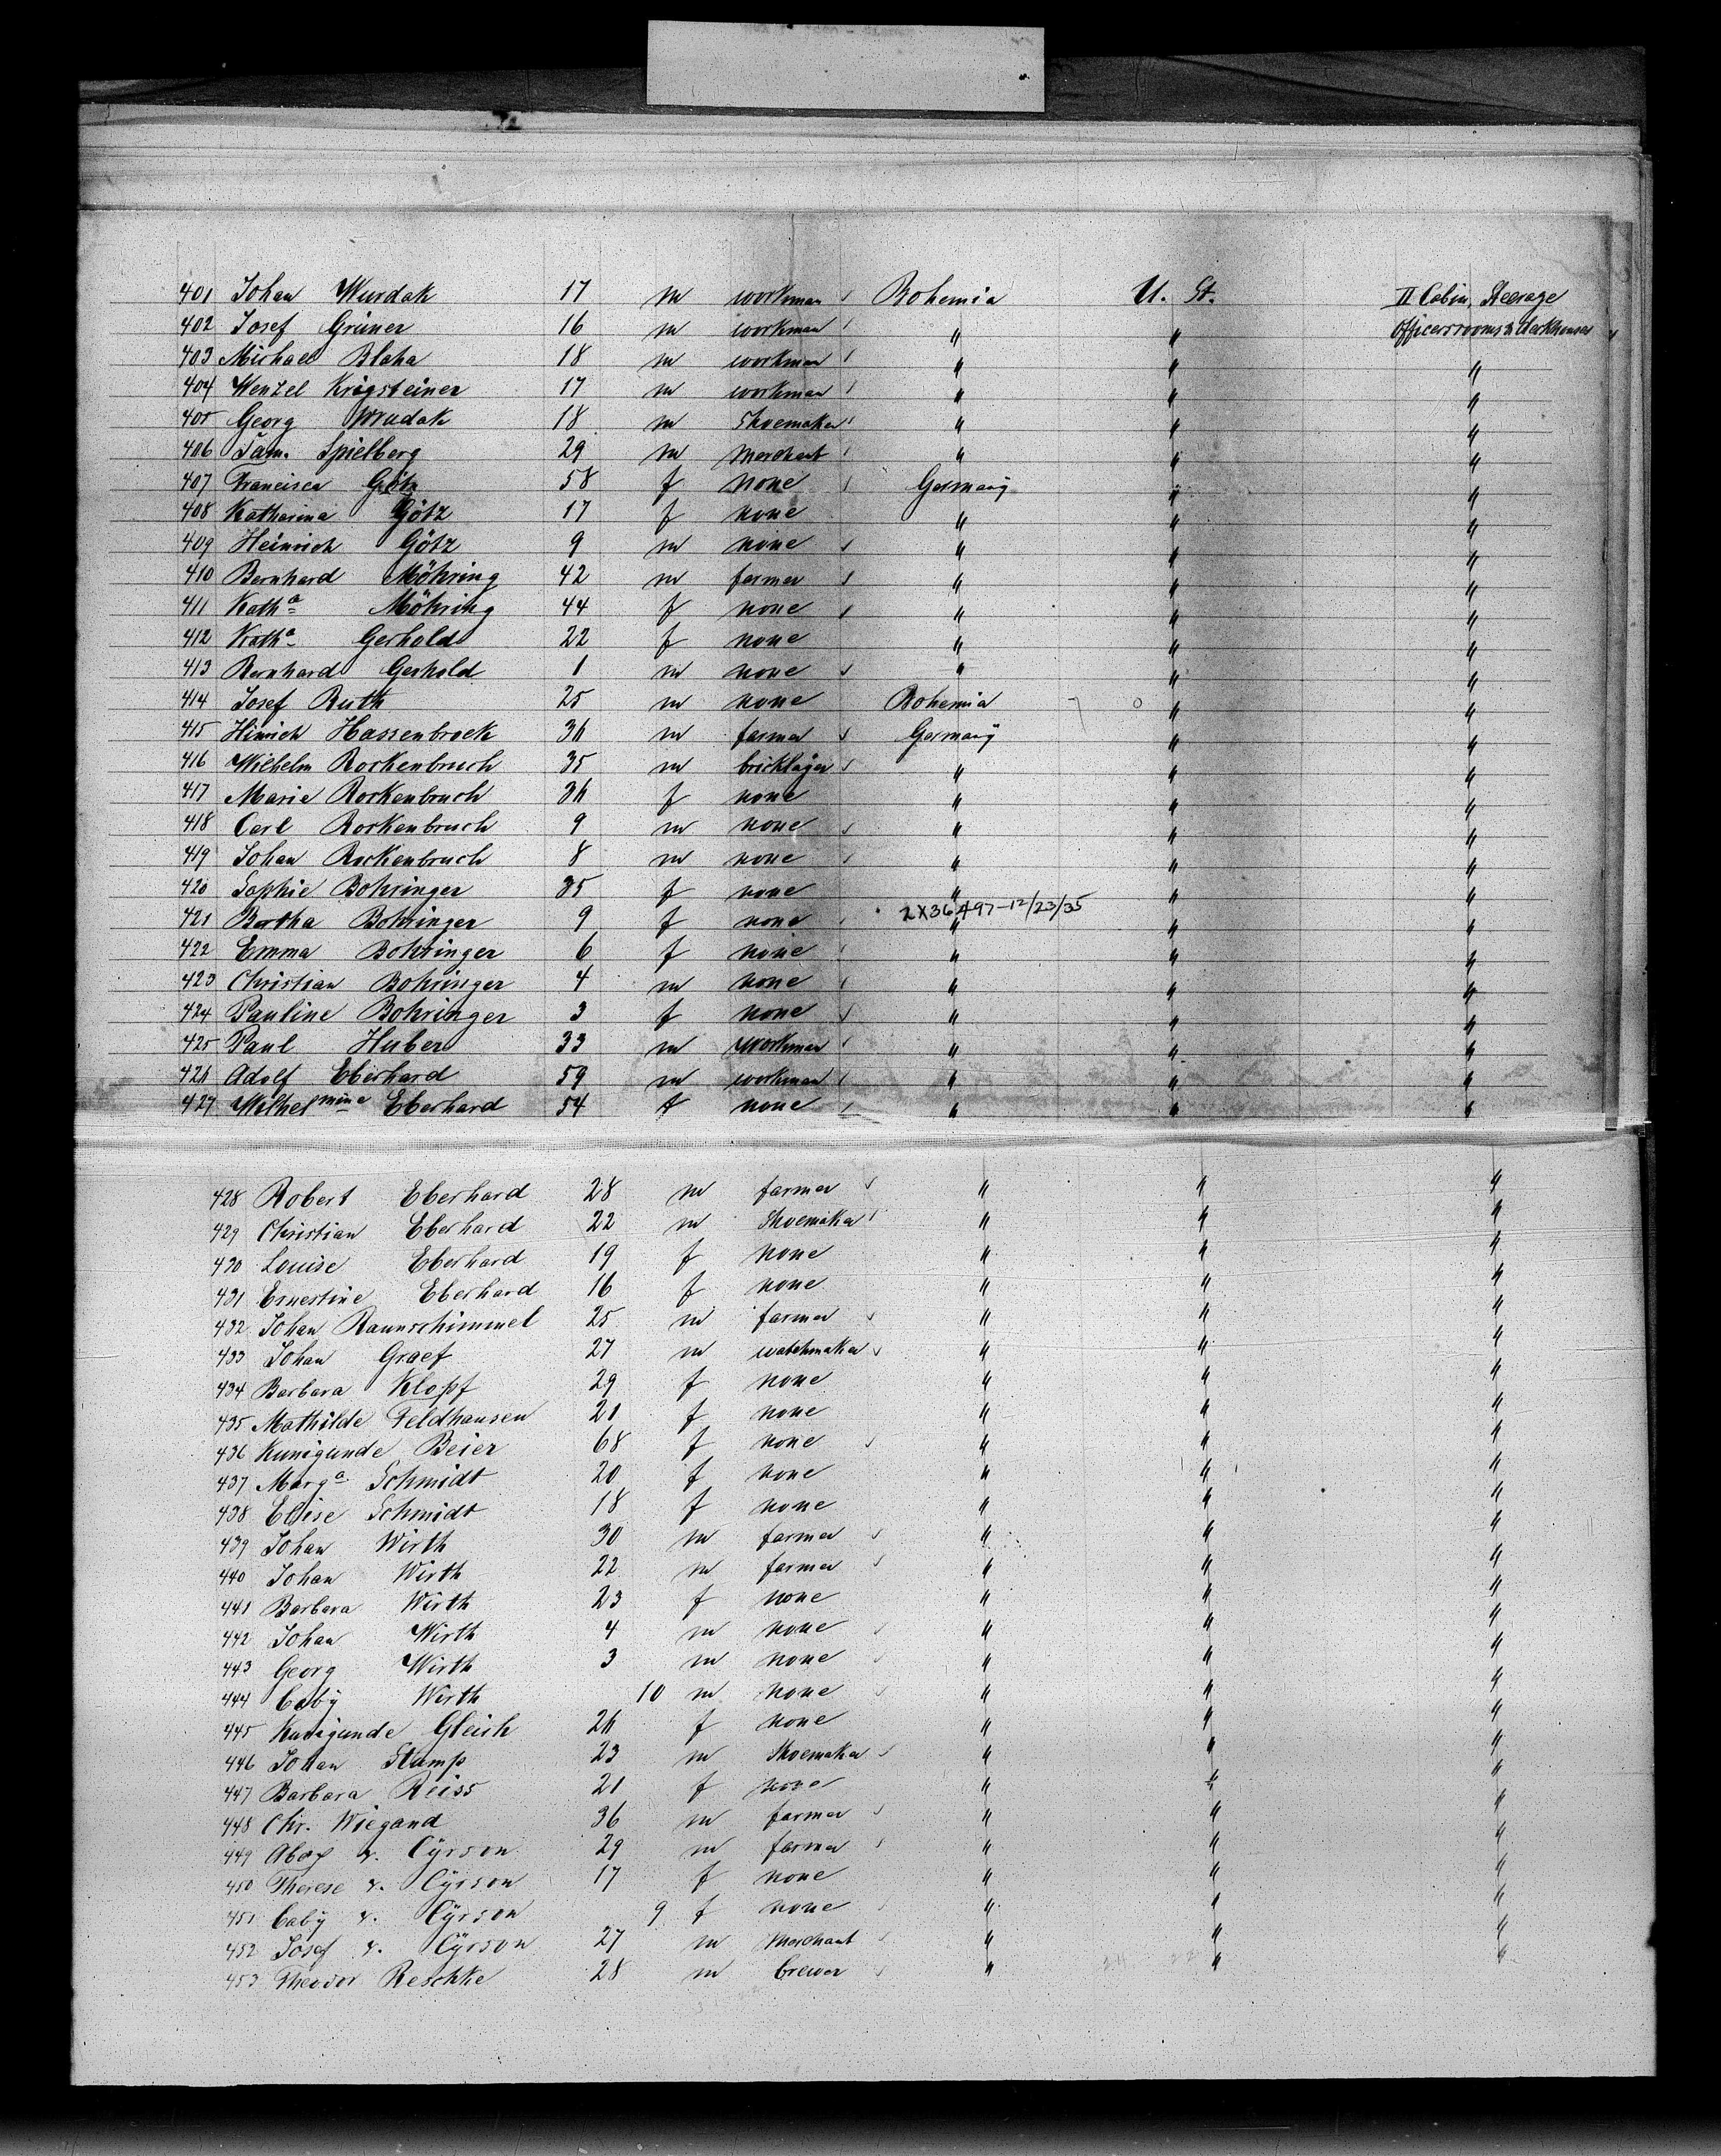 401 Johan Wurdak 17 m workman Bohemia U. St. II Cabin, Steerage
402 Josef Grüner 16 m workman " " Officersrooms & deckhouses
403 Michael Blaha 18 m workman " " "
404 Wenzel Krigsteiner 17 m workman " " "
405 Georg Wrudak 18 m Shoemaker " " "
406 Sam. Spielberg 29 m Merchant " " "
407 Francisca Götz 58 f none Germany " "
408 Katharina Götz 17 f none " " "
409 Heinrich Götz 9 m none " " "
410 Bernhard Möhring 42 m farmer " " "
411 Kath<sup>a</sup> Möhring 44 f none " " "
412 Kath<sup>a</sup> Gerhold 22 f none " " "
413 Bernhard Gerhold 1 m none " " "
414 Josef Ruth 25 m none Bohemia " "
415 Hinrich Hassenbrock 36 m farmer Germany " "
416 Wilhelm Rockenbruch 35 m bricklayer " " "
417 Marie Rockenbruch 36 f none " " "
418 Carl Rockenbruch 9 m none " " "
419 Johan Rockenbruch 8 m none " " "
420 Sophie Bohringer 35 f none " " "
421 Bertha Bohringer 9 f none 2X36497-12/23/35 " " "
422 Emma Bohringer 6 f none " " "
423 Christian Bohringer 4 m none " " "
424 Pauline Bohringer 3 f none " " "
425 Paul Huber 33 m Workman " " "
426 Adolf Eberhard 59 m workman " " "
427 Wilhelmmine Eberhard 54 f none " " "
428 Robert Eberhard 28 m farmer " " "
429 Christian Eberhard 22 m Shoemaker " " "
430 Louise Eberhard 19 f none " " "
431 Ernestine Eberhard 16 f none " " "
432 Johan Raunschimmel 25 m farmer " " "
433 Johan Graef 27 m watchmaker " " "
434 Barbara Klopf 29 f none " " "
435 Mathilde Feldhausen 21 f none " " "
436 Kunigunde Beier 68 f none " " "
437 Marg<sup>a</sup> Schmidt 20 f none " " "
438 Elise Schmidt 18 f none " " "
439 Johan Wirth 30 m farmer " " "
440 Johan Wirth 22 m farmer " " "
441 Barbara Wirth 23 f none " " "
442 Johan Wirth 4 m none " " "
443 Georg Wirth 3 m none " " "
444 baby Wirth 10 m none " " "
445 Kunigunde Gleich 26 f none " " "
446 Johan Stamp 23 m Shoemaker " " "
447 Barbara Reiss 21 f none " " "
448 Chr. Wiegand 36 m farmer " " "
449 v. Cÿrson 29 m farmer " " "
450 Therese v. Cÿrson 17 f none " " "
451 baby v. Cÿrson 9 f none " " "
452 Josef v. Cÿrson 27 m Merchant " " "
453 Theodor Reschke 28 m brewer " " "